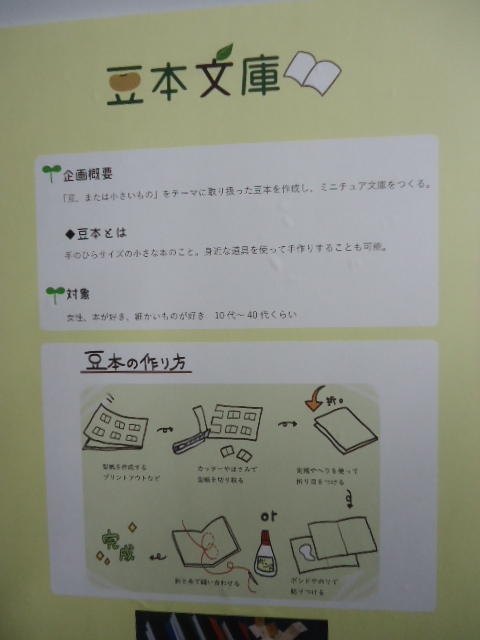 豆本文庫
企画概要
「豆、または小さいもの」をテーマに取り扱った豆本を作成し、ミニチュア文庫をつくる。
◆豆本とは
手のひらサイズの小さな本のこと。身近な道具を使って手作りすることも可能。
対象
女性、本が好き、細かいものが好き 10代～40代くらい
豆本の作り方
折。
型紙を作成する
プリントアウトなど
カッターやはさみで
型紙を切り取る
定規やヘラを使って
折り目をつける
or
完成
針と糸で縫い合わせる
ボンドやのりで
貼りつける